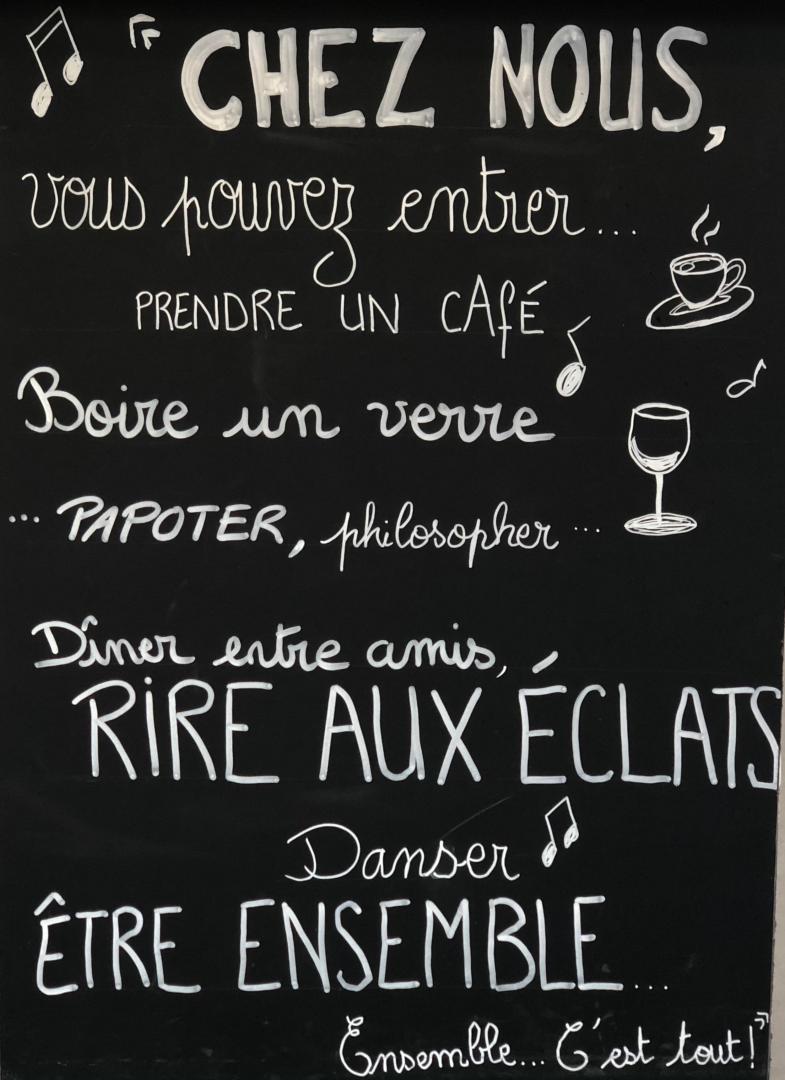 « CHEZ NOUS,
vous pouvez entrer...
PRENDRE UN CAfÉ
Boire un verre
... PAPOTER, philosopher ...
Dîner entre amis,
RiRE AUX ÉCLATS
Danser
ÊTRE ENSEMBLE...
Ensemble... C'est tout! »